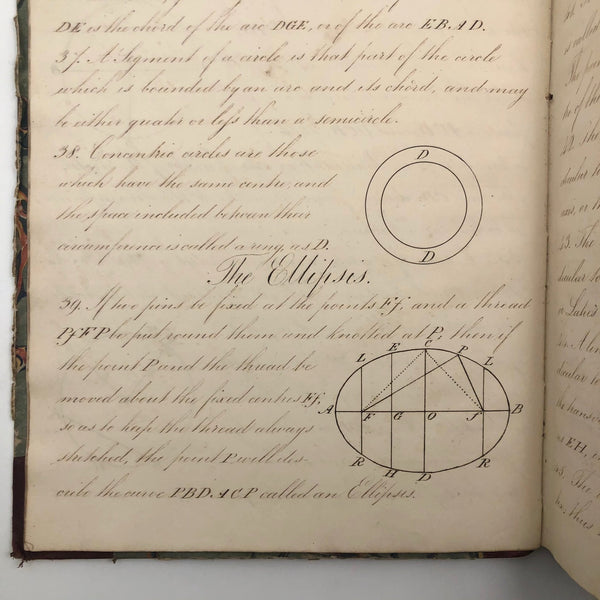 DE is the chord of the arc DGE, or of the arc EBAD.
37. A Segment of a circle is that part of the circle
which is bounded by an arc and its chord, and may
be either greater or less than a semicircle.
38. Concentric circles are those
which have the same centre, and
the space included between their
circumference is called a ring, as D.
D
D
The Ellipsis.
39. If two pins be fixed at the points F f, and a thread
PfFP be put round them and knotted at P, then if
the point P and the thread be
moved about the fixed centres Ff,
so as to keep the thread always
stretched, the point P will des-
cribe the curve PBD.ACP called an Ellipsis.
L E C P L
A F G O f B
R H D R
is called
The poin
of the
42. the
dicular to
axis, or th
43. The
dicular to
a Latus
A lin
dicular to
as EH, o
The
Thus